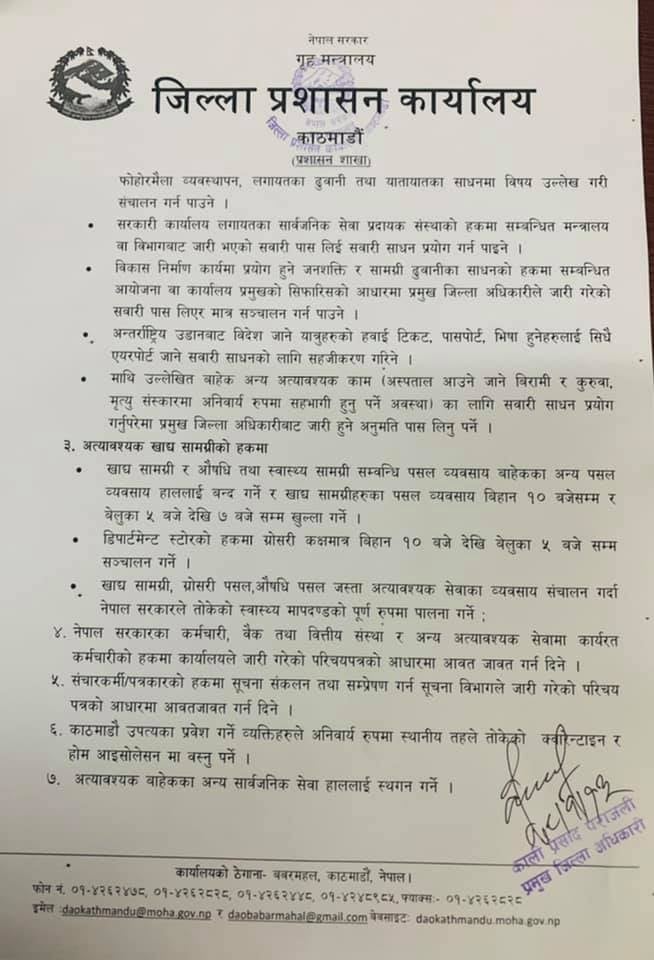 नेपाल सरकार
गृह मन्त्रालय
जिल्ला प्रशासन कार्यालय
काठमाडौं
(प्रशासन शाखा)
फोहोरमैला व्यवस्थापन, लगायतका ढुवानी तथा यातायातका साधनमा विषय उल्लेख गरी
संचालन गर्न पाउने ।
• सरकारी कार्यालय लगायतका सार्वजनिक सेवा प्रदायक संस्थाको हकमा सम्बन्धित मन्त्रालय
वा विभागबाट जारी भएको सवारी पास लिई सवारी साधन प्रयोग गर्न पाइने ।
• विकास निर्माण कार्यमा प्रयोग हुने जनशक्ति र सामग्री ढुवानीका साधनको हकमा सम्बन्धित
आयोजना वा कार्यालय प्रमुखको सिफारिसको आधारमा प्रमुख जिल्ला अधिकारीले जारी गरेको
सवारी पास लिएर मात्र सञ्चालन गर्न पाउने ।
• अन्तर्राष्ट्रिय उडानबाट विदेश जाने यात्रुहरुको हवाई टिकट, पासपोर्ट, भिषा हुनेहरुलाई सिधै
एयरपोर्ट जाने सवारी साधनको लागि सहजीकरण गरिने ।
• माथि उल्लेखित बाहेक अन्य अत्यावश्यक काम (अस्पताल आउने जाने बिरामी र कुरुवा,
मृत्यु संस्कारमा अनिवार्य रुपमा सहभागी हुनु पर्ने अवस्था) का लागि सवारी साधन प्रयोग
गर्नुपरेमा प्रमुख जिल्ला अधिकारीबाट जारी हुने अनुमति पास लिनु पर्ने ।
३. अत्यावश्यक खाद्य सामग्रीको हकमा
• खाद्य सामग्री र औषधि तथा स्वास्थ्य सामग्री सम्वन्धि पसल व्यवसाय बाहेकका अन्य पसल
व्यवसाय हाललाई बन्द गर्ने र खाद्य सामग्रीहरुका पसल व्यवसाय विहान १० बजेसम्म र
बेलुका ५ बजे देखि ७ बजे सम्म खुल्ला गर्ने ।
• डिपार्टमेन्ट स्टोरको हकमा ग्रोसरी कक्षमात्र विहान १० बजे देखि बेलुका ५ बजे सम्म
सञ्चालन गर्ने ।
• खाद्य सामग्री, ग्रोसरी पसल,औषधि पसल जस्ता अत्यावश्यक सेवाका व्यवसाय संचालन गर्दा
नेपाल सरकारले तोकेको स्वास्थ्य मापदण्डको पूर्ण रुपमा पालना गर्ने ;
४. नेपाल सरकारका कर्मचारी, वैक तथा वित्तीय संस्था र अन्य अत्यावश्यक सेवामा कार्यरत
कर्मचारीको हकमा कार्यालयले जारी गरेको परिचयपत्रको आधारमा आवत जावत गर्न दिने ।
५. संचारकर्मी/पत्रकारको हकमा सूचना संकलन तथा सम्प्रेषण गर्न सूचना विभागले जारी गरेको परिचय
पत्रको आधारमा आवतजावत गर्न दिने ।
६. काठमाडौ उपत्यका प्रवेश गर्ने व्यक्तिहरुले अनिवार्य रुपमा स्थानीय तहले तोकेको क्वारेन्टाइन र
होम आइसोलेसन मा वस्नु पर्ने ।
७. अत्यावश्यक बाहेकका अन्य सार्वजनिक सेवा हाललाई स्थगन गर्ने ।
काली प्रसाद पराजली
प्रमुख जिल्ला अधिकारी
कार्यालयको ठेगाना- बबरमहल, काठमाडौं, नेपाल।
फोन नं. ०१-४२६२४७८, ०१-४२६२८२८, ०१-४२६२४४८, ०१-४२४८९८५, फ्याक्सः- ०१-४२६२८२८
इमेल :daokathmandu@moha.gov.np र daobabarmahal@gmail.com वेवसाइटः daokathmandu.moha.gov.np